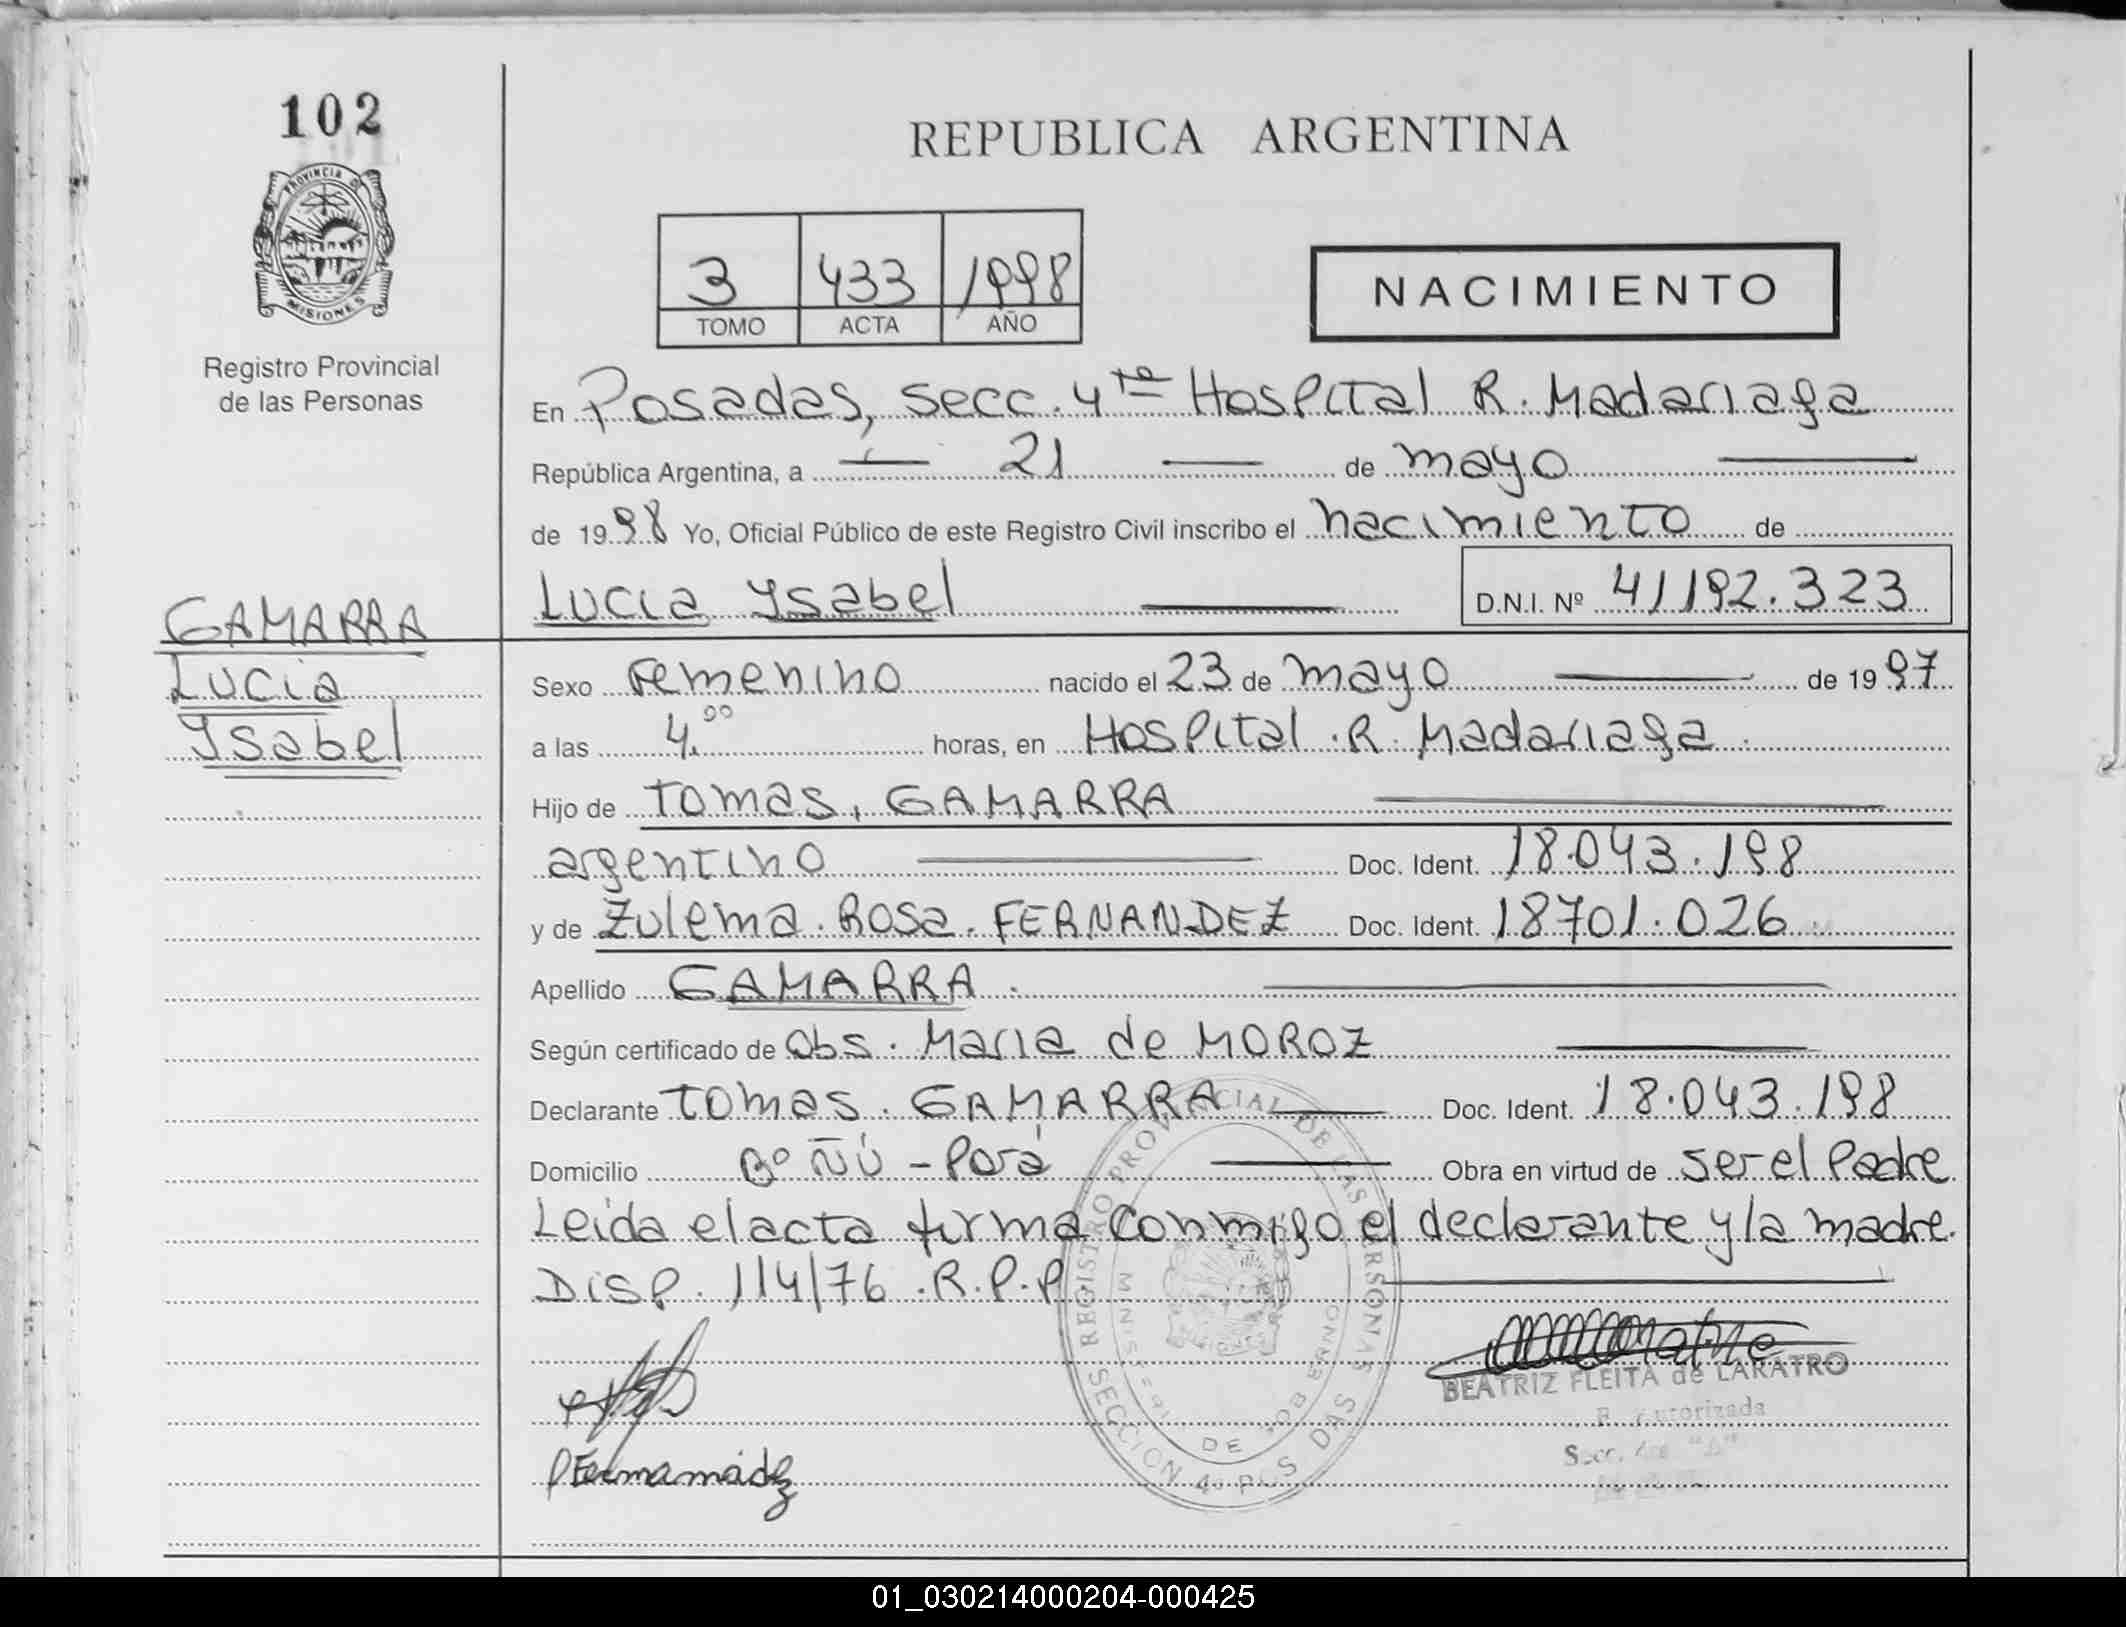 102
REPUBLICA ARGENTINA
PROVINCIA DE MISIONES
Registro Provincial
de las Personas
3 433 1998
TOMO ACTA AÑO
NACIMIENTO
En Posadas, secc. 4ta Hospital R. Madariaga
República Argentina, a — 21 — de mayo —
de 1998 Yo, Oficial Público de este Registro Civil inscribo el nacimiento de
Lucia Ysabel — D.N.I. Nº 41192.323
GAMARRA
Lucia
Ysabel
Sexo Femenino nacido el 23 de mayo — de 1997
a las 4.00 horas, en Hospital R. Madariaga
Hijo de Tomas. GAMARRA —
argentino — Doc. Ident. 18.043.198
y de Zulema. Rosa. FERNANDEZ Doc. Ident. 18701.026
Apellido GAMARRA. —
Según certificado de Obs. Maria de MOROZ —
Declarante Tomas. GAMARRA — Doc. Ident. 18.043.198
Domicilio Bº Ñú - Porá — Obra en virtud de ser el Padre
Leida el acta firma conmigo el declarante y la madre.
Disp. 114/76 .R.P.P —
REGISTRO PROVINCIAL DE LAS PERSONAS
MINISTERIO DE GOBIERNO
SECCION 4ª POSADAS
BEATRIZ FLEITA de LARATRO
Autorizada
Secc. 4ta "A"
01_030214000204-000425